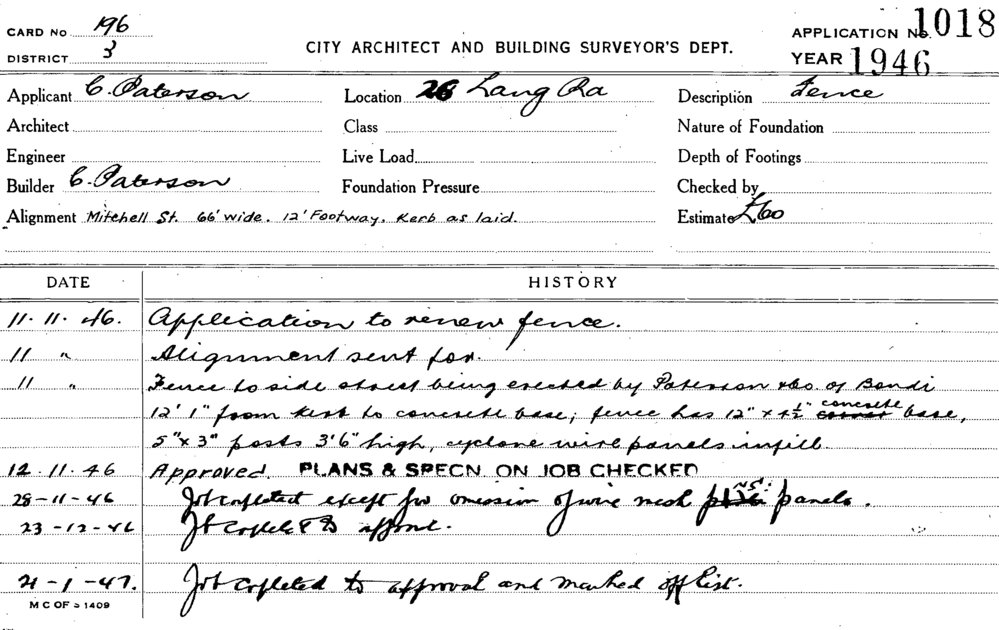 CARD No 196
DISTRICT 3
CITY ARCHITECT AND BUILDING SURVEYOR'S DEPT.
APPLICATION No. 1018
YEAR 1946
Applicant C. Paterson
Location 26 Lang Rd
Description Fence
Architect
Class
Nature of Foundation
Engineer
Live Load
Depth of Footings
Builder C. Paterson
Foundation Pressure
Checked by
Alignment Mitchell St. 66' wide. 12' Footway. Kerb as laid.
Estimate £60
DATE HISTORY
11. 11. 46. Application to renew fence.
11 " Alignment sent for.
11 " Fence to side street being erected by Paterson & Co. of Bondi
12' 1" from kerb to concrete base; fence has 12" x 4½" concrete base,
5" x 3" posts 3'6" high, cyclone wire panels infill.
12. 11. 46 Approved. PLANS & SPECN. ON JOB CHECKED
28-11-46 Job completed except for omission of wire mesh panels.
23-12-46 Job
21-1-47. Job completed to approval and marked off list.
M C OF S 1409